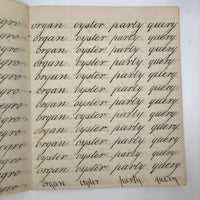 egro organ oyster party query
egro organ oyster party query
egro organ oyster party query
egro organ oyster party query
egro organ oyster party query
egro organ oyster party query
egro organ oyster party query
egro organ oyster party query
egro organ oyster party query
egro organ oyster party query
organ oyster party query
organ oyster party query
organ oyster party query